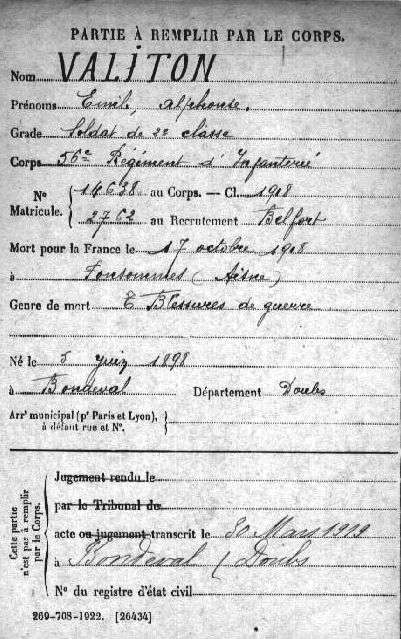 PARTIE À REMPLIR PAR LE CORPS.
Nom VALITON
Prénoms Emile, Alphonse.
Grade Soldat de 2e classe
Corps 56e Régiment d'Infanterie
No Matricule. 14638 au Corps. — Cl. 1918
2762 au Recrutement Belfort
Mort pour la France le 17 octobre 1918
à Fonsommes (Aisne)
Genre de mort Blessures de guerre
Né le 5 juin 1898
à Bondeval Département Doubs
Arrt municipal (pr Paris et Lyon),
à défaut rue et No.
Cette partie n'est pas à remplir par le Corps.
Jugement rendu le
par le Tribunal de
acte ou jugement transcrit le 30 Mars 1919
à Bondeval (Doubs
No du registre d'état civil
269-708-1922. [26434]